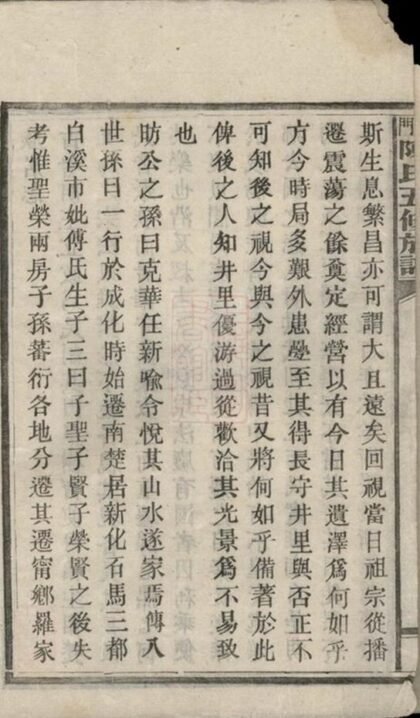 門陳氏五修族譜
斯生息繁昌亦可謂大且遠矣回視當日祖宗從播
遷震蕩之餘奠定經營以有今日其遺澤爲何如乎
方今時局多艱外患疊至其得長守井里與否正不
可知後之視今與今之視昔又將何如乎備著於此
俾後之人知井里優游過從歡洽其光景爲不易致
也
昉公之孫曰克華任新喻令悅其山水遂家焉傳八
世孫曰一行於成化時始遷南楚居新化石馬三都
白溪市妣傅氏生子三曰子聖子賢子榮賢之後失
考惟聖榮兩房子孫蕃衍各地分遷其遷甯鄉羅家